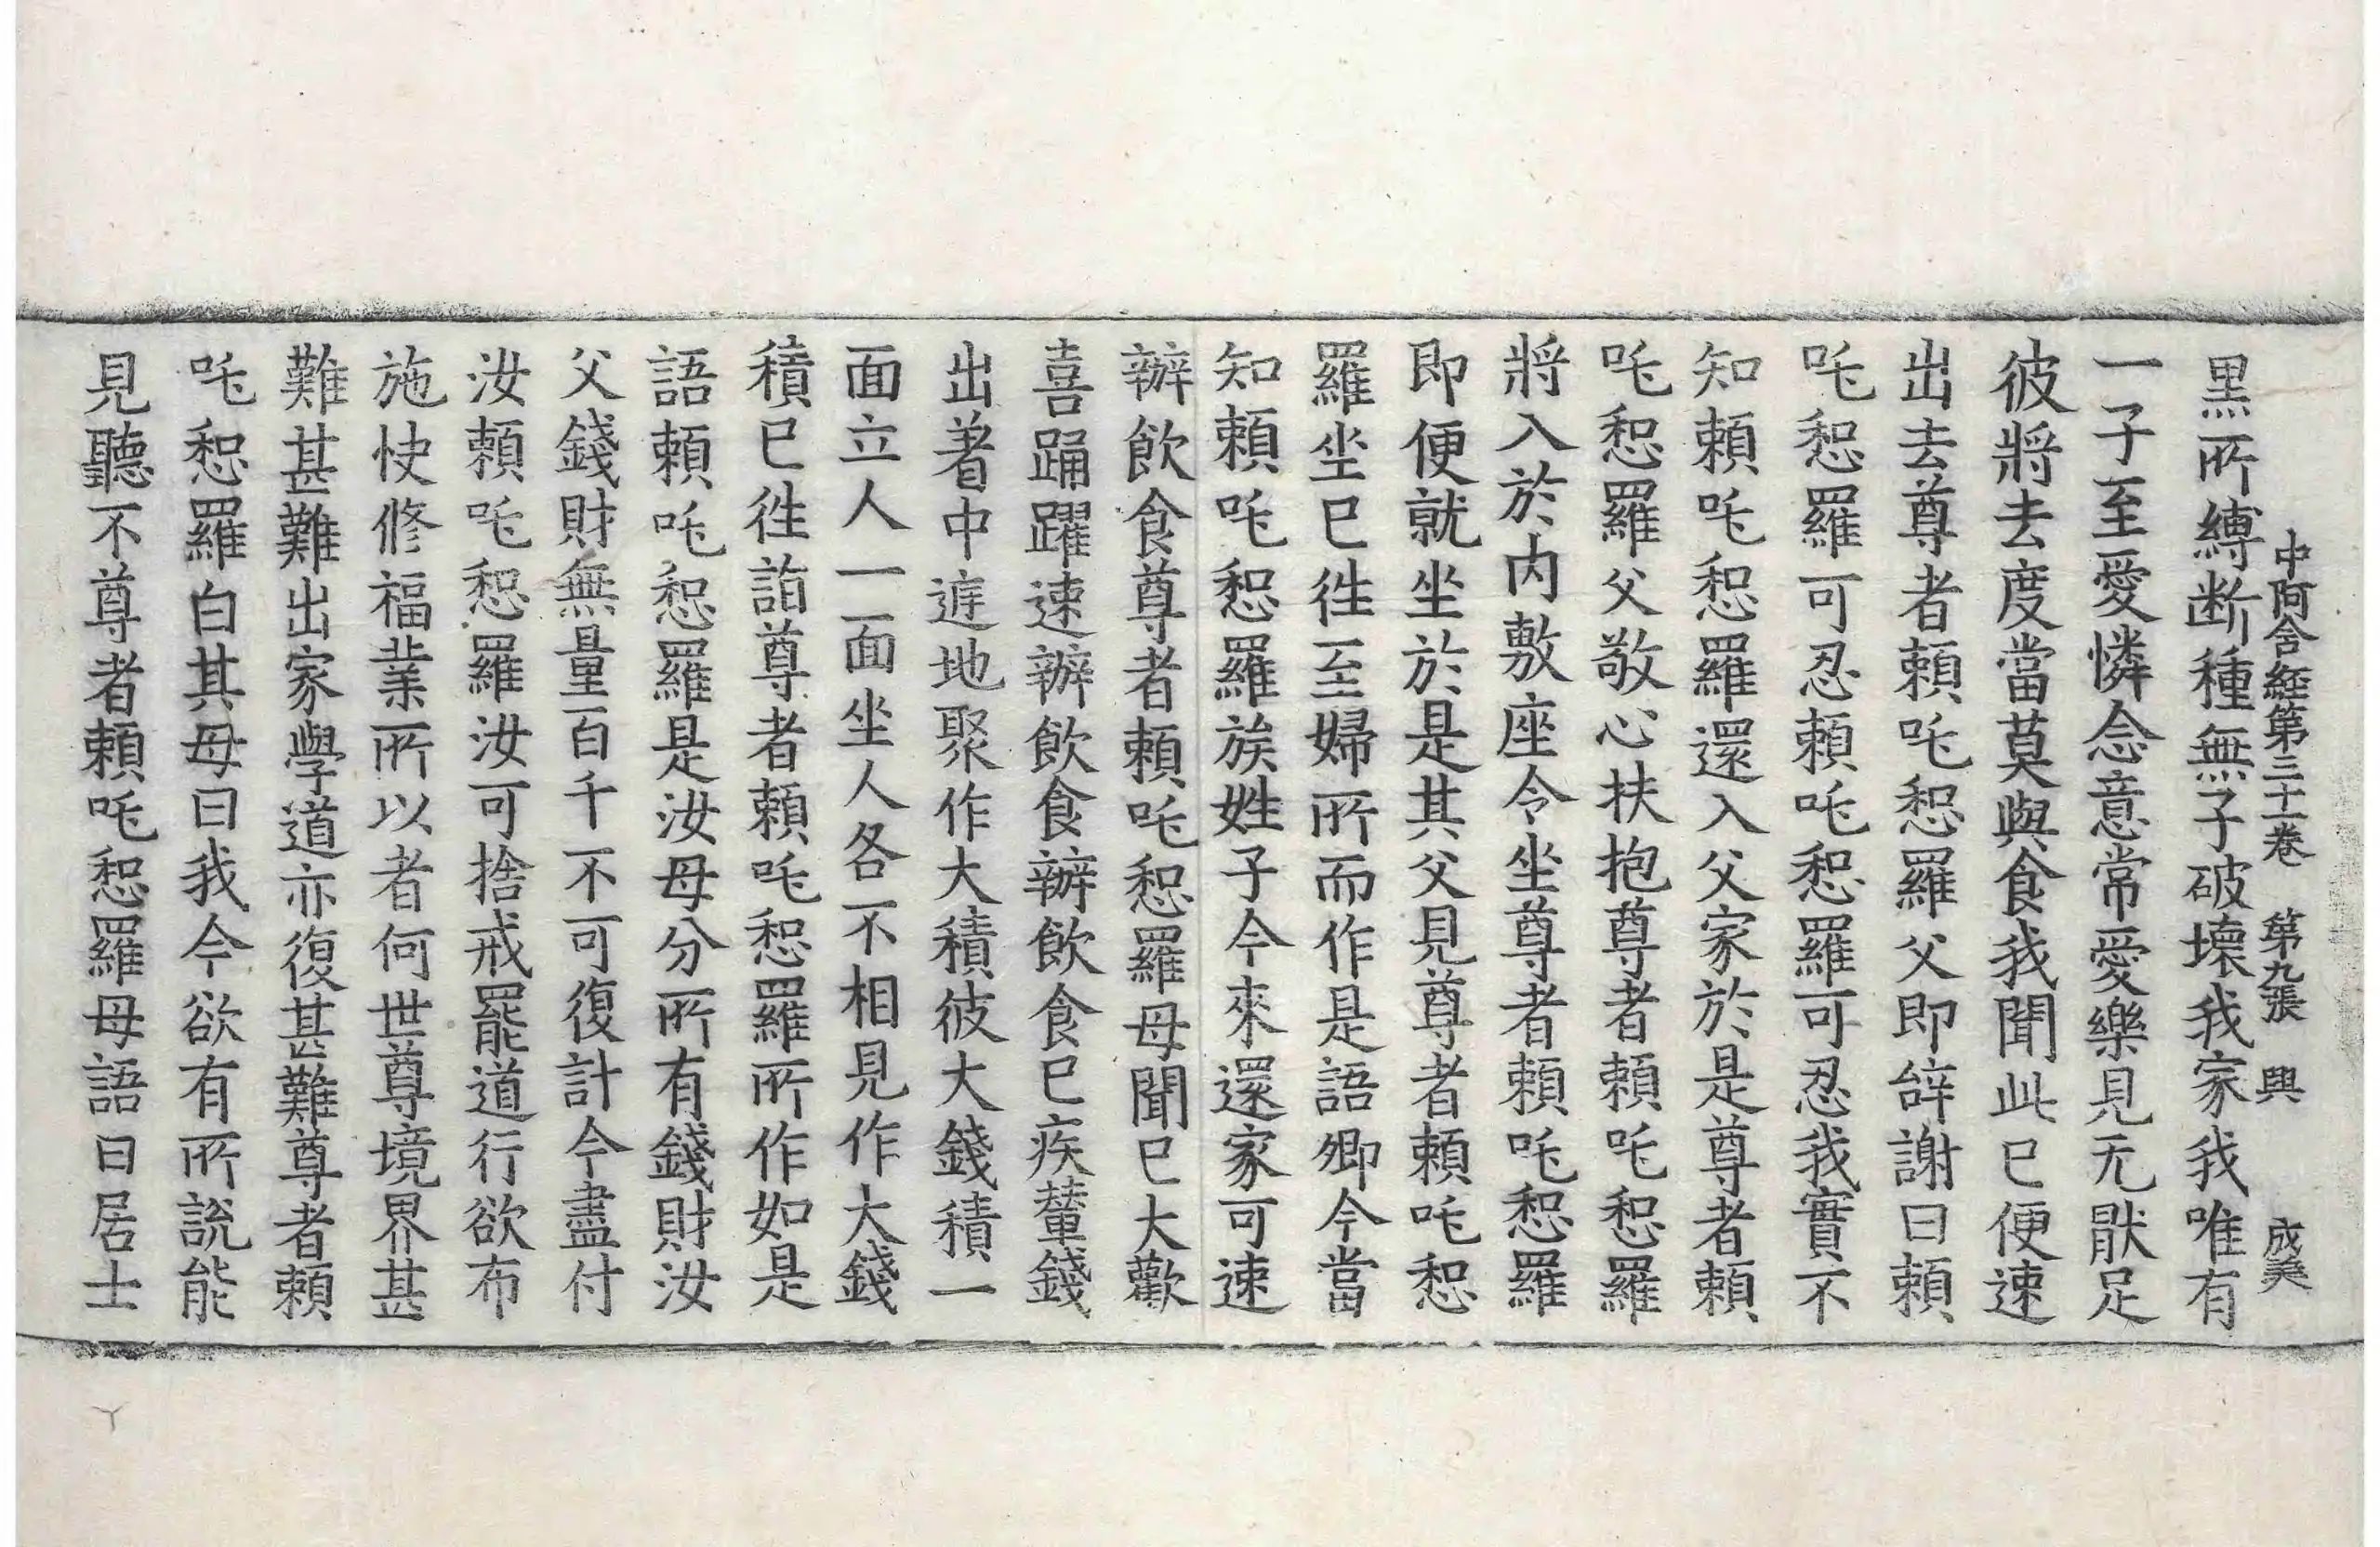 中阿含經第三十一卷　第九張　興　成奐
黑所縛断種無子破壞我家我唯有
一子至愛憐念意常愛樂見无猒足
彼將去度當莫與食我聞此已便速
出去尊者賴吒惒羅父即辝謝曰賴
吒惒羅可忍賴吒惒羅可忍我實不
知賴吒惒羅還入父家於是尊者賴
吒惒羅父敬心扶抱尊者賴吒惒羅
將入於内敷座令坐尊者賴吒惒羅
即便就坐於是其父見尊者賴吒惒
羅坐已徃至婦所而作是語卿今當
知賴吒惒羅族姓子今來還家可速
辦飲食尊者賴吒惒羅母聞已大歡
喜踊躍速辦飲食辦飲食已疾輦錢
出著中庭地聚作大積彼大錢積一
面立人一面坐人各不相見作大錢
積已徃詣尊者賴吒惒羅所作如是
語賴吒惒羅是汝母分所有錢財汝
父錢財無量百千不可復計今盡付
汝賴吒惒羅汝可捨戒罷道行欲布
施快修福業所以者何世尊境界甚
難甚難出家學道亦復甚難尊者賴
吒惒羅白其母曰我今欲有所説能
見聽不尊者賴吒惒羅母語曰居士